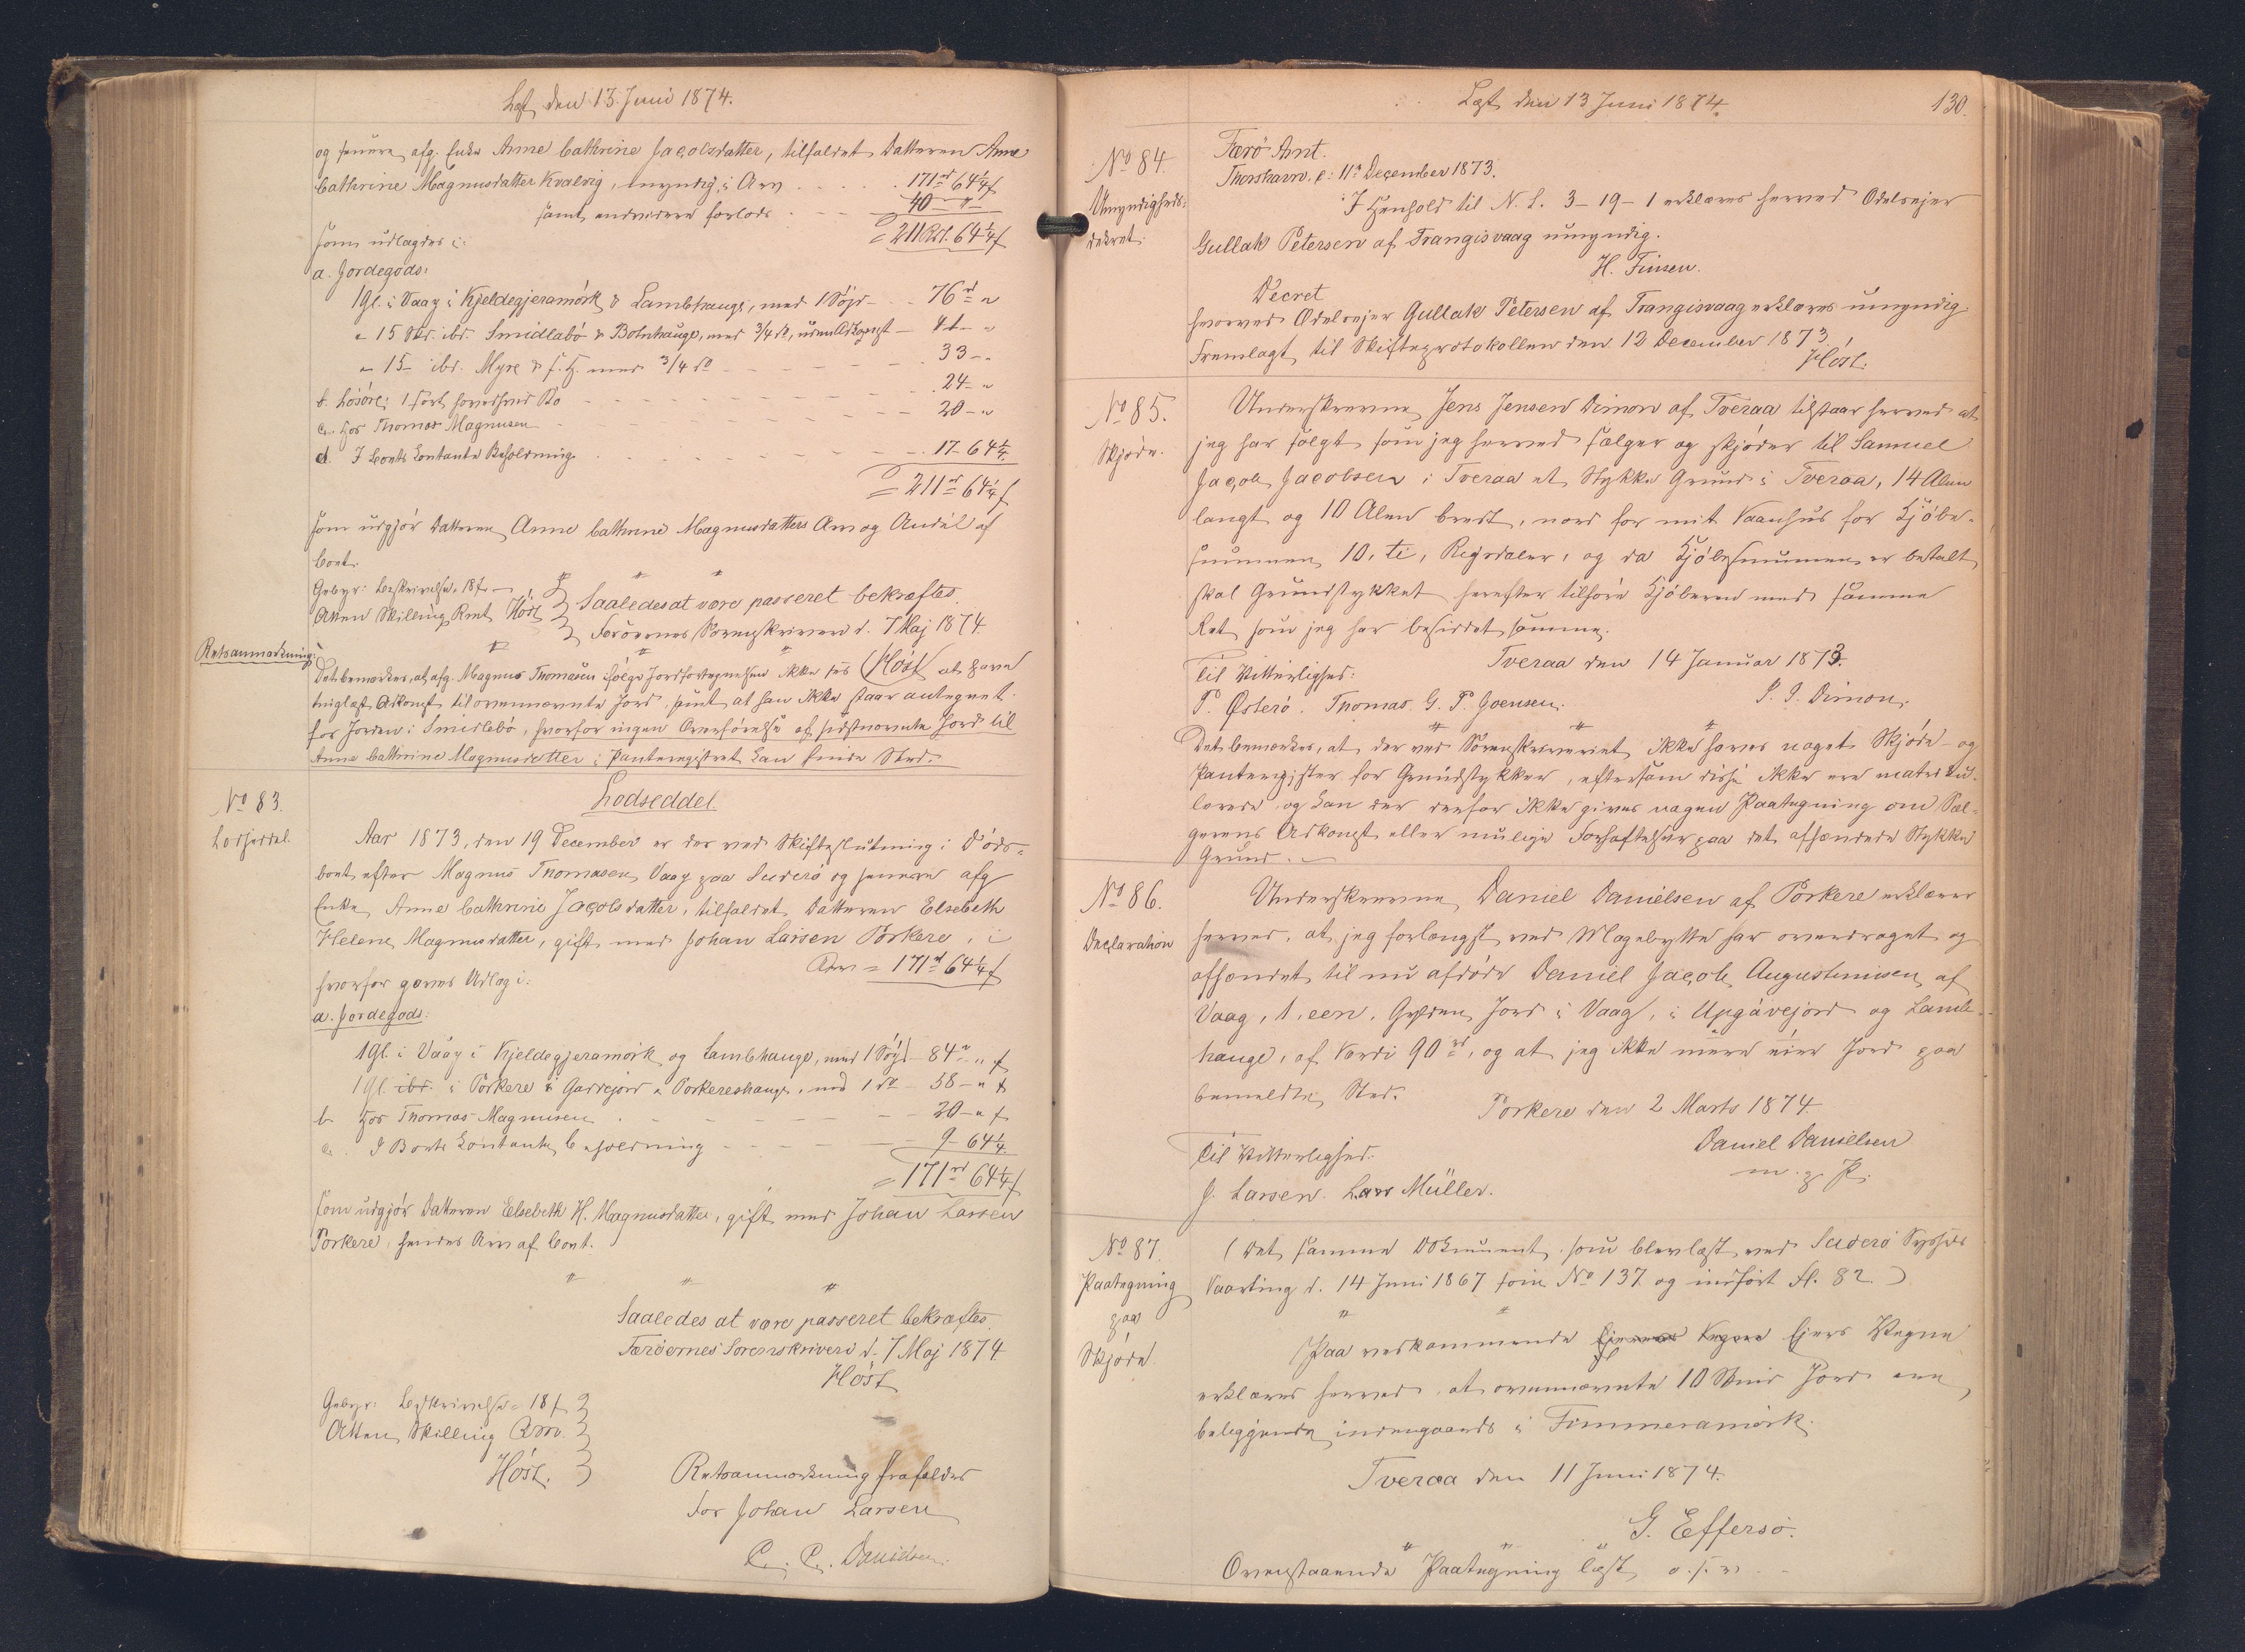 Læst den 13. Juni 1874.
og senere afg. Enke Anne Cathrine Jacobsdatter, tilfaldet Datteren Anne
Cathrine Magnusdatter Kvalvig, umyndig, i Arv . . . . . 171rd 64¼ ſ
samt endvidere forlods . . . 40 — "
= 211 Rd. 64¼ ſ
som udlagdes i:
a. Jordegods:
1 Gl. i Vaag i Kjeldegjeramørk & Lambhauge, med 1 Søyd — 76rd "
" 15 Sk. ibd. Smidlabø & Botnhauge, med 3/4 do, uden Adkomst — 41 — "
" 15 — ibd. Myre & f. H. med 3/4 do — 33 — "
b. Løsøre: 1 sort hovedhvid Ko — 24 — "
c. Hos Thomas Magnusen — 20 — "
d. I Boets contante Beholdning — 17 — 64¼
= 211rd 64¼ ſ
som udgjør Datteren Anne Cathrine Magnusdatters Arv og Andel af
Boet.
Gebyr: Beskrivelse 18 ſ —
Atten Skilling Rmt Høst
Saaledes at være passeret bekræftes.
Færøernes Sorenskriveri d. 7 Maj 1874.
Høst
Retsanmærkning:
Det bemærkes, at afg. Magnus Thomasen ifølge Jordfortegnelsen ikke sés at have
tinglæst Adkomst til ovennævnte Jord, samt at han ikke staar antegnet
for Jorden i Smidlebø, hvorfor ingen Overførelse af sidstnævnte Jord til
Anne Cathrine Magnusdatter i Panteregistret kan finde Sted.
No 83.
Lodseddel.
Lodseddel
Aar 1873, den 19 December er der ved Skifteslutning i Døds-
boet efter Magnus Thomasen Vaag paa Suderø og senere afg
Enke Anne Cathrine Jacobsdatter, tilfaldet Datteren Elsebeth
Helene Magnusdatter, gift med Johan Larsen Porkere, i
Arv = 171rd 64¼ ſ
hvorfor gjøres Udlæg i:
a. Jordegods:
1 Gl. i Vaag i Kjeldegjeramørk og Lambhauge, med 1 Søyd — 84rd " ſ
1 Gl. ibd. i Porkere i Gardejord & Porkereshauge, med 1 do — 58 — " ſ
b. Hos Thomas Magnusen — 20 — " ſ
c. I Boets Contante Beholdning — 9 — 64¼
= 171rd 64¼ ſ
som udgjør Datteren Elsebeth H. Magnusdatter, gift med Johan Larsen
Porkere, hendes Arv af Boet.
Saaledes at være passeret bekræftes.
Færøernes Sorenskriveri d. 7 Maj 1874.
Høst
Gebyr: Beskrivelse = 18 ſ
Atten Skilling Rm.
Høst.
Retsanmærkning frafaldes
For Johan Larsen
C. C. Danielsen.
Læst den 13 Juni 1874.
130.
No 84.
Umyndigheds-
dekret.
Færø Amt.
Thorshavn, d: 11te December 1873.
I Henhold til N. L. 3–19–1 erklæres herved Odelsejer
Gullak Petersen af Trangisvaag umyndig.
H. Finsen.
Decret
hvorved Odelsejer Gullak Petersen af Trangisvaag erklæres umyndig
Fremlagt til Skifteprotokollen den 12 December 1873.
Høst.
No 85.
Skjøde.
Underskrevne Jens Jensen Dimon af Tveraa tilstaar herved at
jeg har solgt som jeg herved sælger og skjøder til Samuel
Jacob Jacobsen i Tveraa et Stykke Grund i Tveraa, 14 Alen
langt og 10 Alen bredt, nord for mit Vaanhus for Kjøbe-
summen 10, ti, Rigsdaler, og da Kjøbesummen er betalt
skal Grundstykket herefter tilhøre Kjøberen med samme
Ret som jeg har besiddet samme.
Tveraa den 14 Januar 1873.
Til Vitterlighed:
J. J. Dimon.
P. Østerø. Thomas G. P. Joensen.
Det bemærkes, at der ved Sorenskriveriet ikke haves noget Skjøde- og
Panteregister for Grundstykker, eftersom disse ikke ere matriku-
lerede, og kan der derfor ikke gives nogen Paategning om Sæl-
gerens Adkomst eller mulige Forhæftelser paa det afhændede Stykke
Grund. —
No 86.
Declaration
Underskrevne Daniel Danielsen af Porkere erklærer
herved, at jeg forlængst ved Magebytte har overdraget og
afhændet til nu afdøde Daniel Jacob Augustinusen af
Vaag, 1, een, Gylden Jord i Vaag, i Upgávejord og Lamb-
hauge, af Værdi 90 rd, og at jeg ikke mere eier Jord paa
bemeldte Sted.
Porkere den 2 Marts 1874
Daniel Danielsen
m. p. P.
Til Vitterlighed:
J. Larsen. Lars Müller.
No 87.
Paategning
paa
Skjøde.
(Det samme Dokument, som blev læst ved Suderø Syssels
Vaarting d. 14 Juni 1867 som No 137 og indført fl. 82.)
Paa vedkommende Ejers Vegne
erklæres herved, at ovennævnte 10 Skind Jord ere
beliggende indengaards i Timmeramørk.
Tveraa den 11 Juni 1874.
G. Effersø.
Ovenstaaende Paategning læst o. s. v.